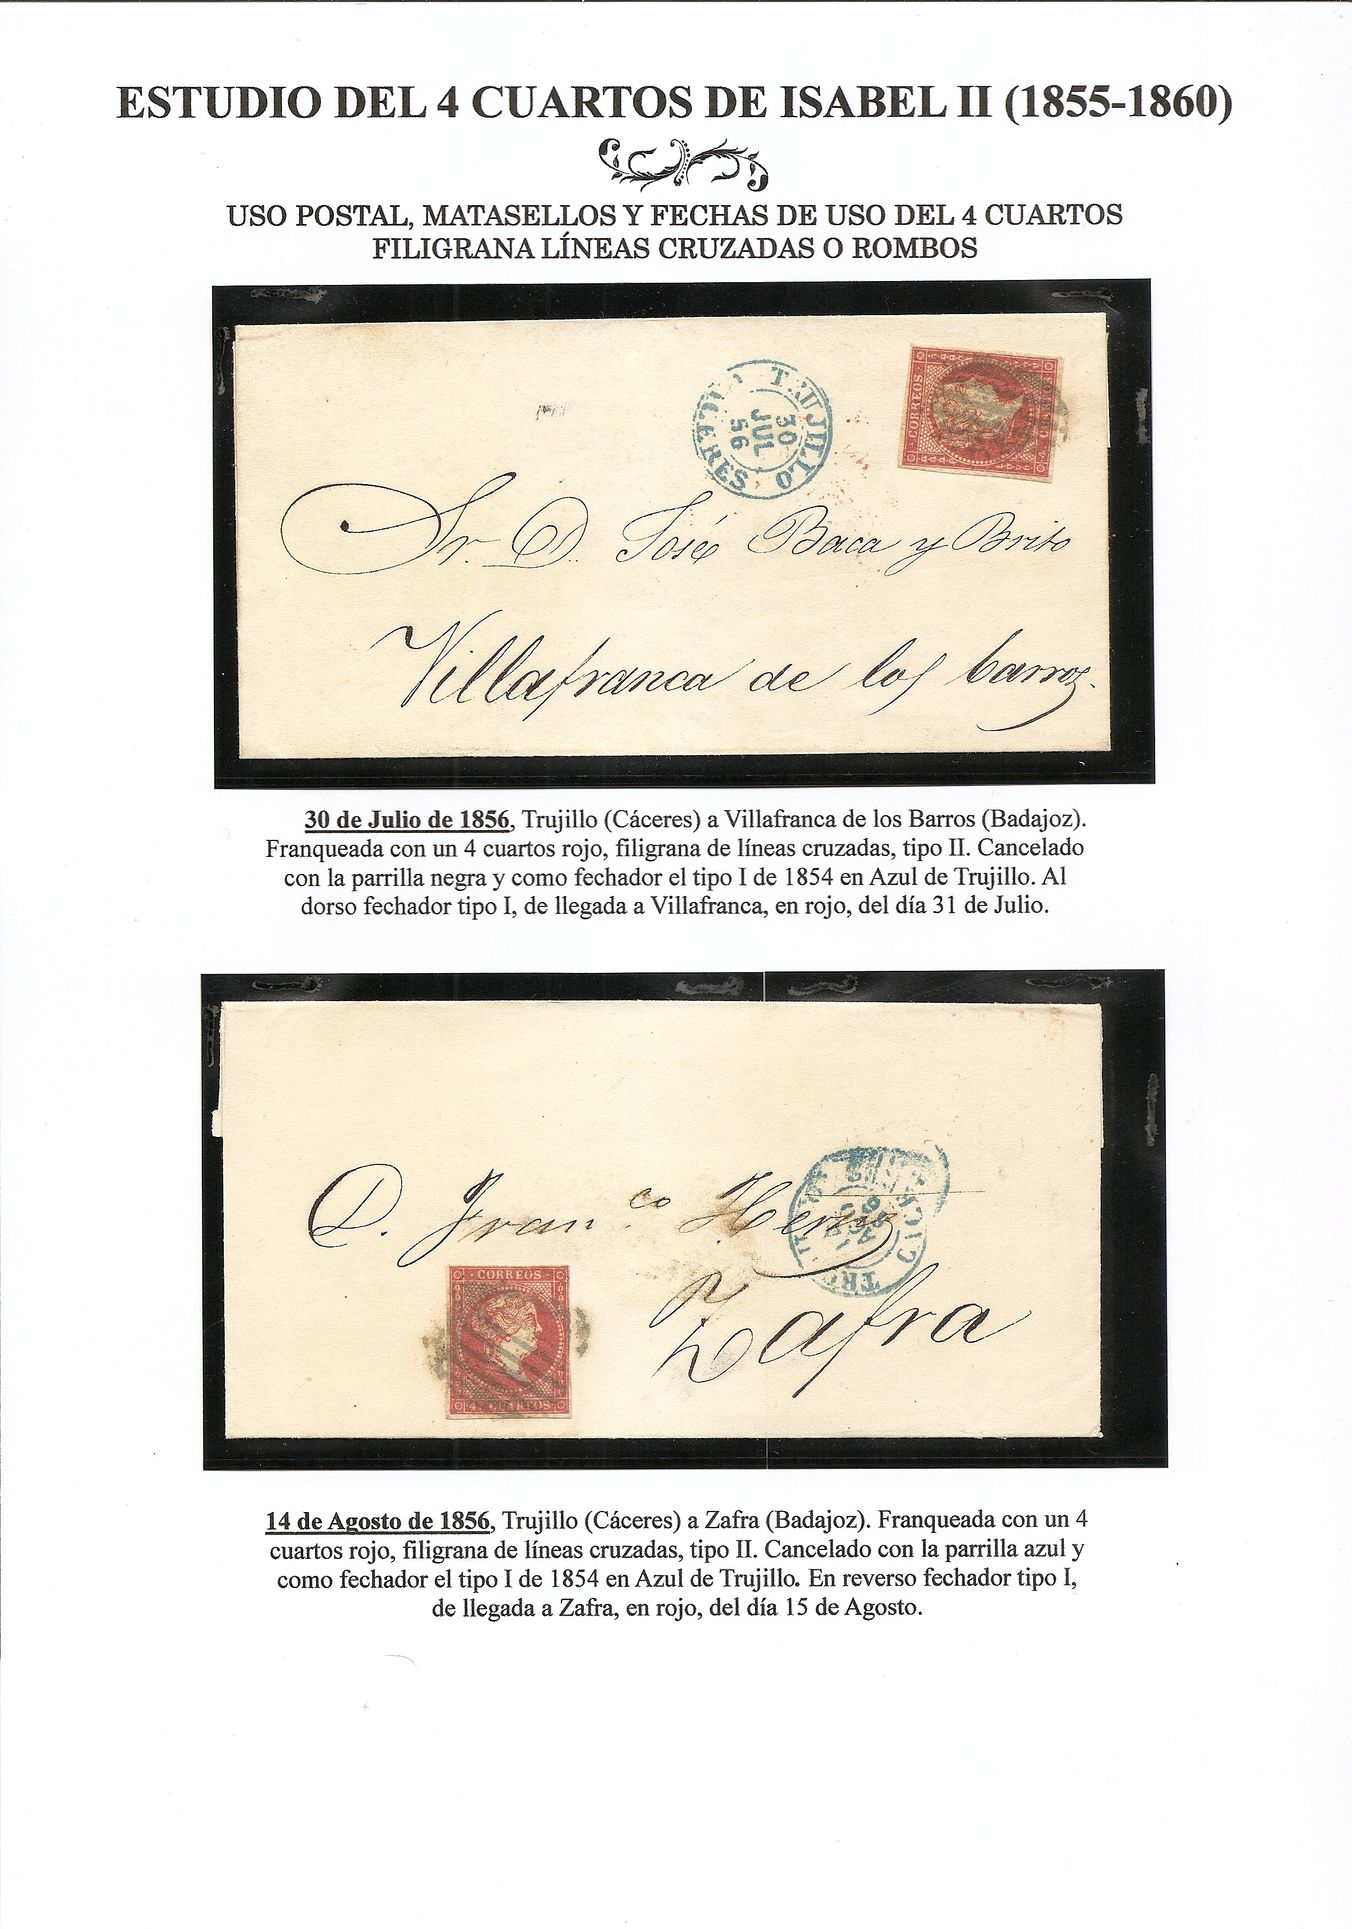 ESTUDIO DEL 4 CUARTOS DE ISABEL II (1855-1860)
USO POSTAL, MATASELLOS Y FECHAS DE USO DEL 4 CUARTOS
FILIGRANA LÍNEAS CRUZADAS O ROMBOS
TRUJILLO
30
JUL
56
CACERES
CORREOS
4 CUARTOS
Sr. D. José Baca y Brito
Villafranca de los barros.
30 de Julio de 1856, Trujillo (Cáceres) a Villafranca de los Barros (Badajoz).
Franqueada con un 4 cuartos rojo, filigrana de líneas cruzadas, tipo II. Cancelado
con la parrilla negra y como fechador el tipo I de 1854 en Azul de Trujillo. Al
dorso fechador tipo I, de llegada a Villafranca, en rojo, del día 31 de Julio.
D. Fran.co Hernz
Zafra
CORREOS
14 de Agosto de 1856, Trujillo (Cáceres) a Zafra (Badajoz). Franqueada con un 4
cuartos rojo, filigrana de líneas cruzadas, tipo II. Cancelado con la parrilla azul y
como fechador el tipo I de 1854 en Azul de Trujillo. En reverso fechador tipo I,
de llegada a Zafra, en rojo, del día 15 de Agosto.